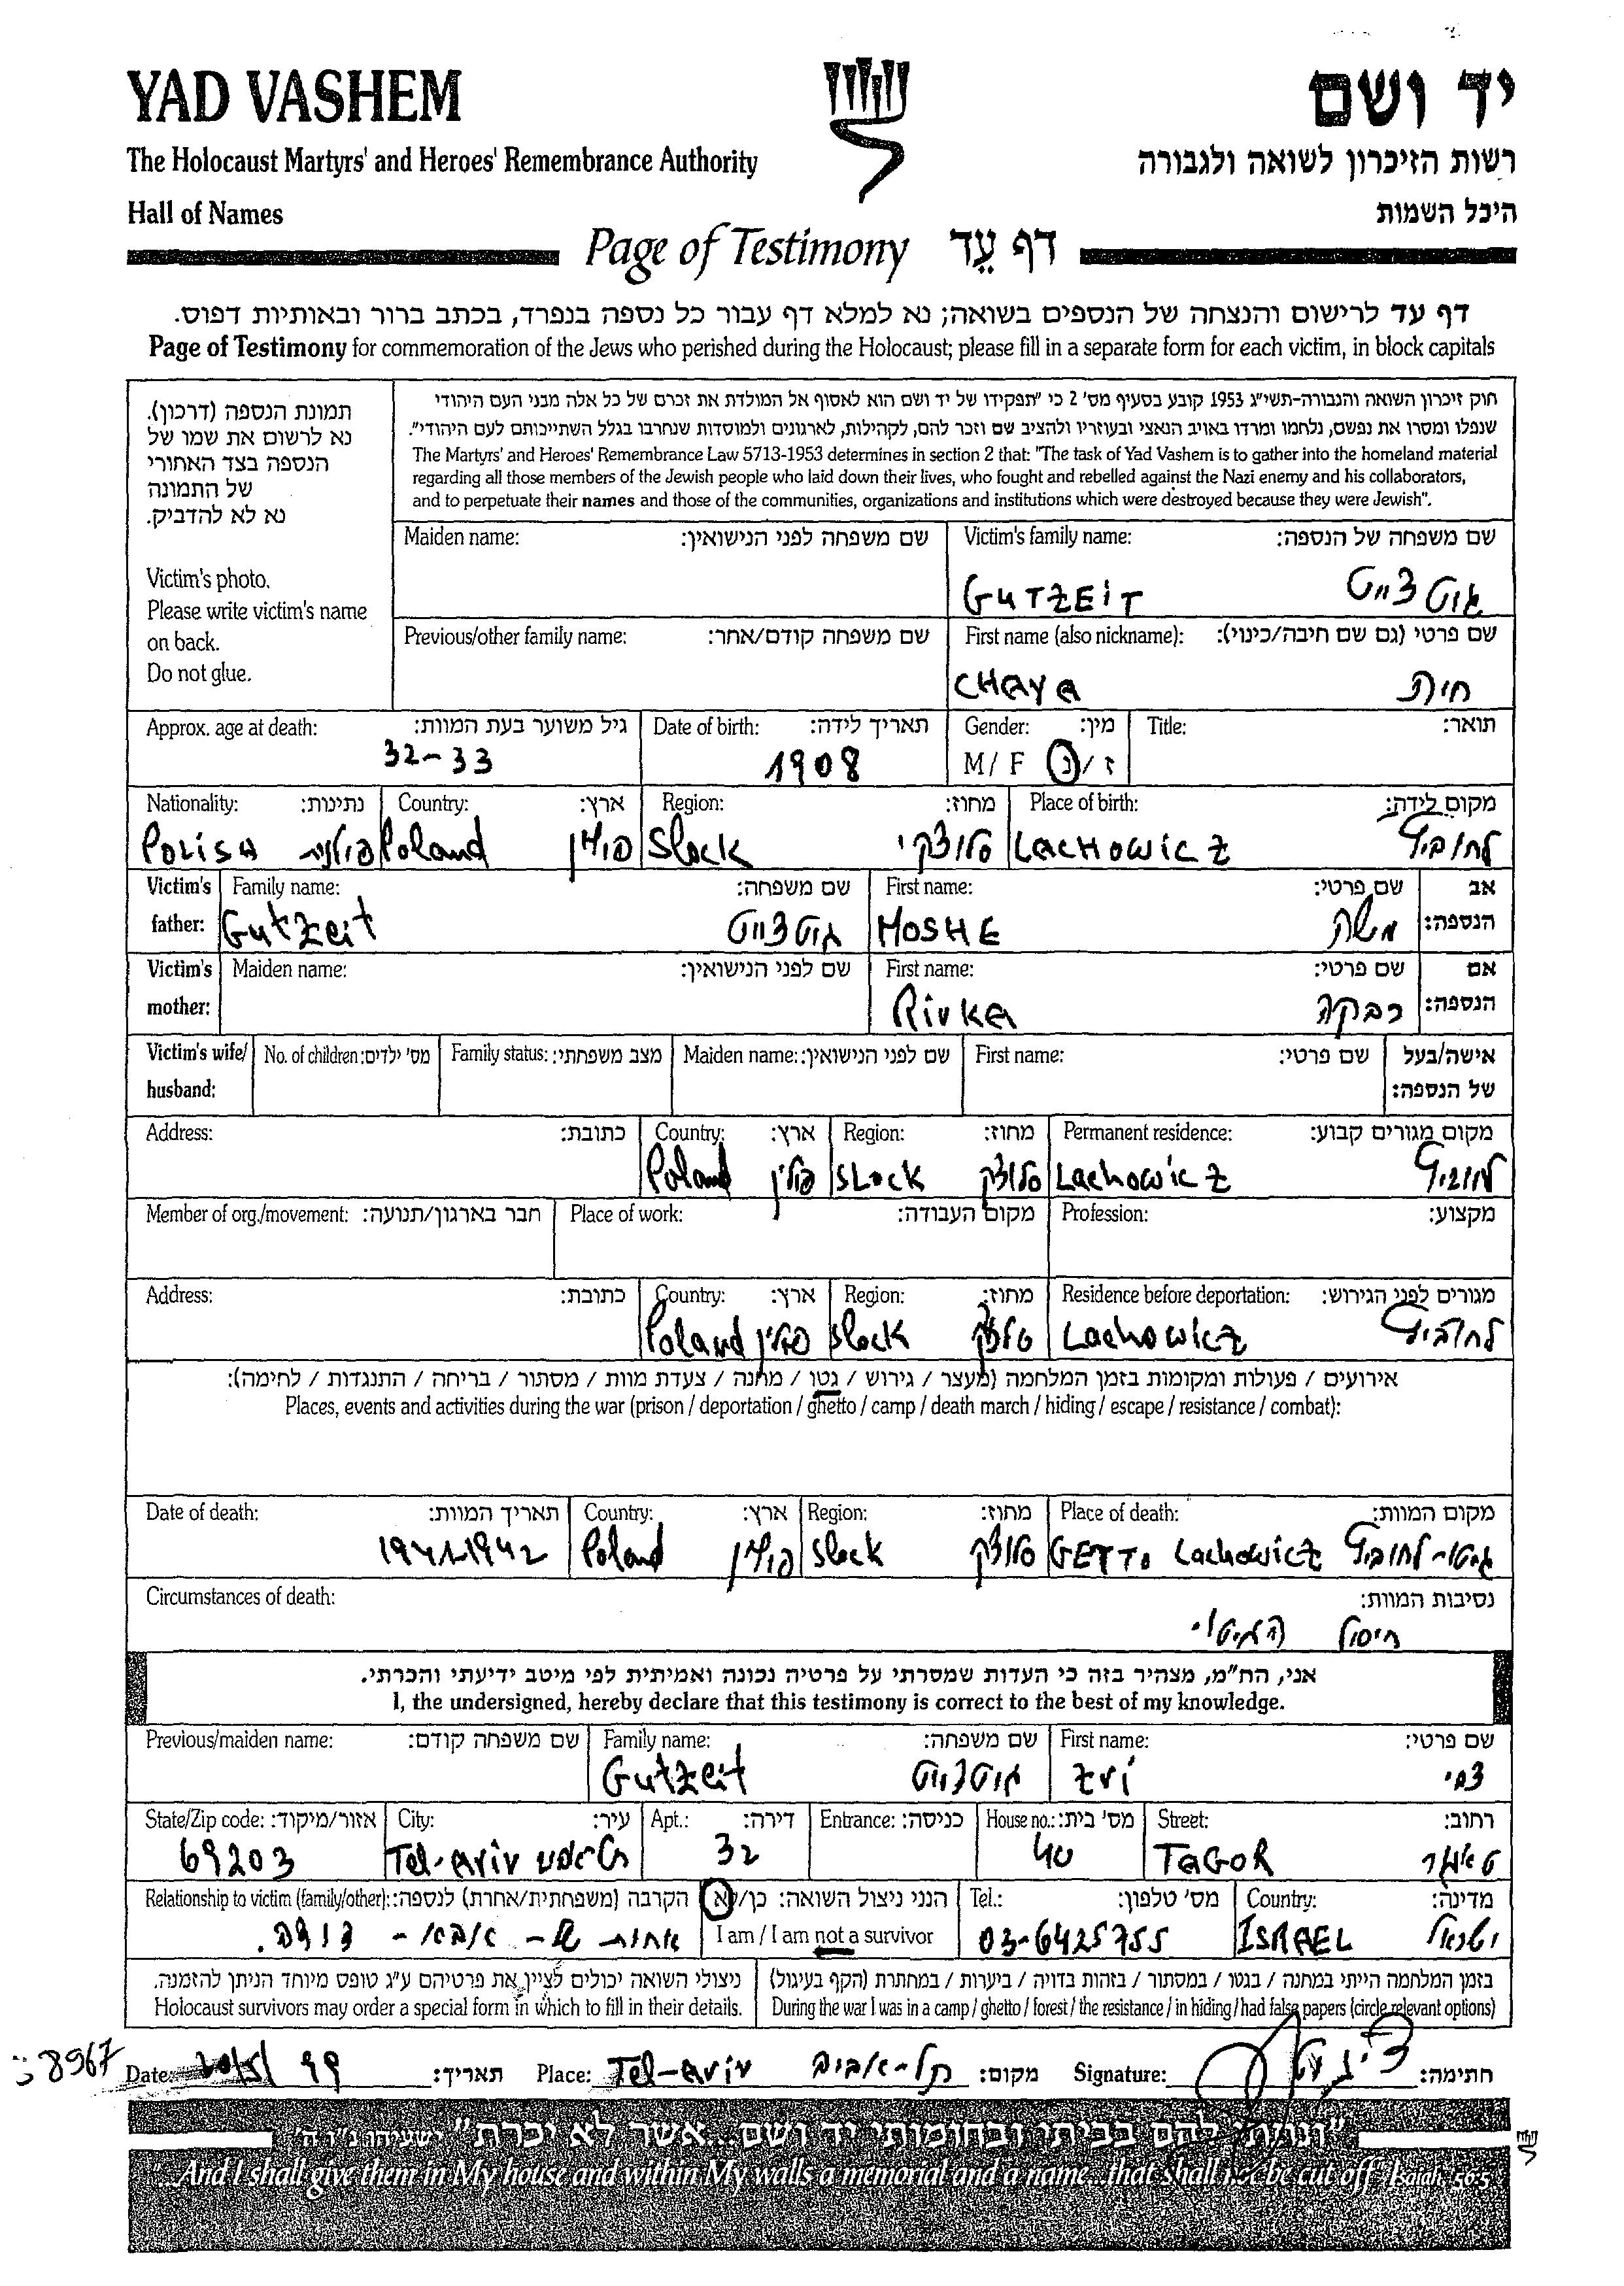 YAD VASHEM
יד ושם
The Holocaust Martyrs' and Heroes' Remembrance Authority
רשות הזיכרון לשואה ולגבורה
Hall of Names
היכל השמות
Page of Testimony דף עֵד
דף עד לרישום והנצחה של הנספים בשואה; נא למלא דף עבור כל נספה בנפרד, בכתב ברור ובאותיות דפוס.
Page of Testimony for commemoration of the Jews who perished during the Holocaust; please fill in a separate form for each victim, in block capitals
תמונת הנספה (דרכון).
נא לרשום את שמו של
הנספה בצד האחורי
של התמונה
נא לא להדביק.
Victim's photo.
Please write victim's name
on back.
Do not glue.
חוק זיכרון השואה והגבורה-תשי"ג 1953 קובע בסעיף מס' 2 כי "תפקידו של יד ושם הוא לאסוף אל המולדת את זכרם של כל אלה מבני העם היהודי
שנפלו ומסרו את נפשם, נלחמו ומרדו באויב הנאצי ובעוזריו ולהציב שם וזכר להם, לקהילות, לארגונים ולמוסדות שנחרבו בגלל השתייכותם לעם היהודי".
The Martyrs' and Heroes' Remembrance Law 5713-1953 determines in section 2 that: "The task of Yad Vashem is to gather into the homeland material
regarding all those members of the Jewish people who laid down their lives, who fought and rebelled against the Nazi enemy and his collaborators,
and to perpetuate their names and those of the communities, organizations and institutions which were destroyed because they were Jewish".
Maiden name: שם משפחה לפני הנישואין: Victim's family name: שם משפחה של הנספה:
GUTZEIT גוטצייט
Previous/other family name: שם משפחה קודם/אחר: First name (also nickname): שם פרטי (גם שם חיבה/כינוי):
CHAYA חיה
Approx. age at death: גיל משוער בעת המוות: Date of birth: תאריך לידה: Gender: מין: Title: תואר:
32-33 1908 M / F ז/נ
Nationality: נתינות: Country: ארץ: Region: מחוז: Place of birth: מקום לידה:
POLISH פולנית Poland פולין Slock סלוצקי LACHOWICZ לחוביץ
Victim's father: Family name: שם משפחה: First name: שם פרטי: אב הנספה:
Gutzeit גוטצייט MOSHE משה
Victim's mother: Maiden name: שם לפני הנישואין: First name: שם פרטי: אם הנספה:
Rivka רבקה
Victim's wife/ husband: No. of children: מס' ילדים: Family status: מצב משפחתי: Maiden name: שם לפני הנישואין: First name: שם פרטי: אישה/בעל של הנספה:
Address: כתובת: Country: ארץ: Region: מחוז: Permanent residence: מקום מגורים קבוע:
Poland פולין SLOCK סלוצק Lachowicz לחוביץ
Member of org./movement: חבר בארגון/תנועה: Place of work: מקום העבודה: Profession: מקצוע:
Address: כתובת: Country: ארץ: Region: מחוז: Residence before deportation: מגורים לפני הגירוש:
Poland פולין Slock סלוצק Lachowicz לחוביץ
אירועים / פעולות ומקומות בזמן המלחמה (מעצר / גירוש / גטו / מחנה / צעדת מוות / מסתור / בריחה / התנגדות / לחימה):
Places, events and activities during the war (prison / deportation / ghetto / camp / death march / hiding / escape / resistance / combat):
Date of death: תאריך המוות: Country: ארץ: Region: מחוז: Place of death: מקום המוות:
1941-1942 Poland פולין Slock סלוצק GETTO Lachowicz גיטו-לחוביץ
Circumstances of death: נסיבות המוות:
חיסול הגיטו
אני, הח"מ, מצהיר בזה כי העדות שמסרתי על פרטיה נכונה ואמיתית לפי מיטב ידיעתי והכרתי.
I, the undersigned, hereby declare that this testimony is correct to the best of my knowledge.
Previous/maiden name: שם משפחה קודם: Family name: שם משפחה: First name: שם פרטי:
Gutzeit גוטצייט Zvi צבי
State/Zip code: אזור/מיקוד: City: עיר: Apt.: דירה: Entrance: כניסה: House no.: מס' בית: Street: רחוב:
69203 Tel-aviv 32 40 TAGOR טאגור
Relationship to victim (family/other): הקרבה (משפחתית/אחרת) לנספה: הנני ניצול השואה: כן/לא Tel.: מס' טלפון: Country: מדינה:
אחות של - אבא - I am / I am not a survivor 03-6425755 ISRAEL ישראל
ניצולי השואה יכולים לציין את פרטיהם ע"ג טופס מיוחד הניתן להזמנה. בזמן המלחמה הייתי במחנה / בגטו / במסתור / בזהות בדויה / ביערות / במחתרת (הקף בעיגול)
Holocaust survivors may order a special form in which to fill in their details. During the war I was in a camp / ghetto / forest / the resistance / in hiding / had false papers (circle relevant options)
8967 Date: 20/5/99 תאריך: Place: Tel-aviv תל-אביב מקום: Signature: חתימה:
"ונתתי להם בביתי ובחומותי יד ושם...אשר לא יכרת" ישעיהו נ"ו ה'
"...And I shall give them in My house and within My walls a memorial and a name...that shall not be cut off." Isaiah 56:5